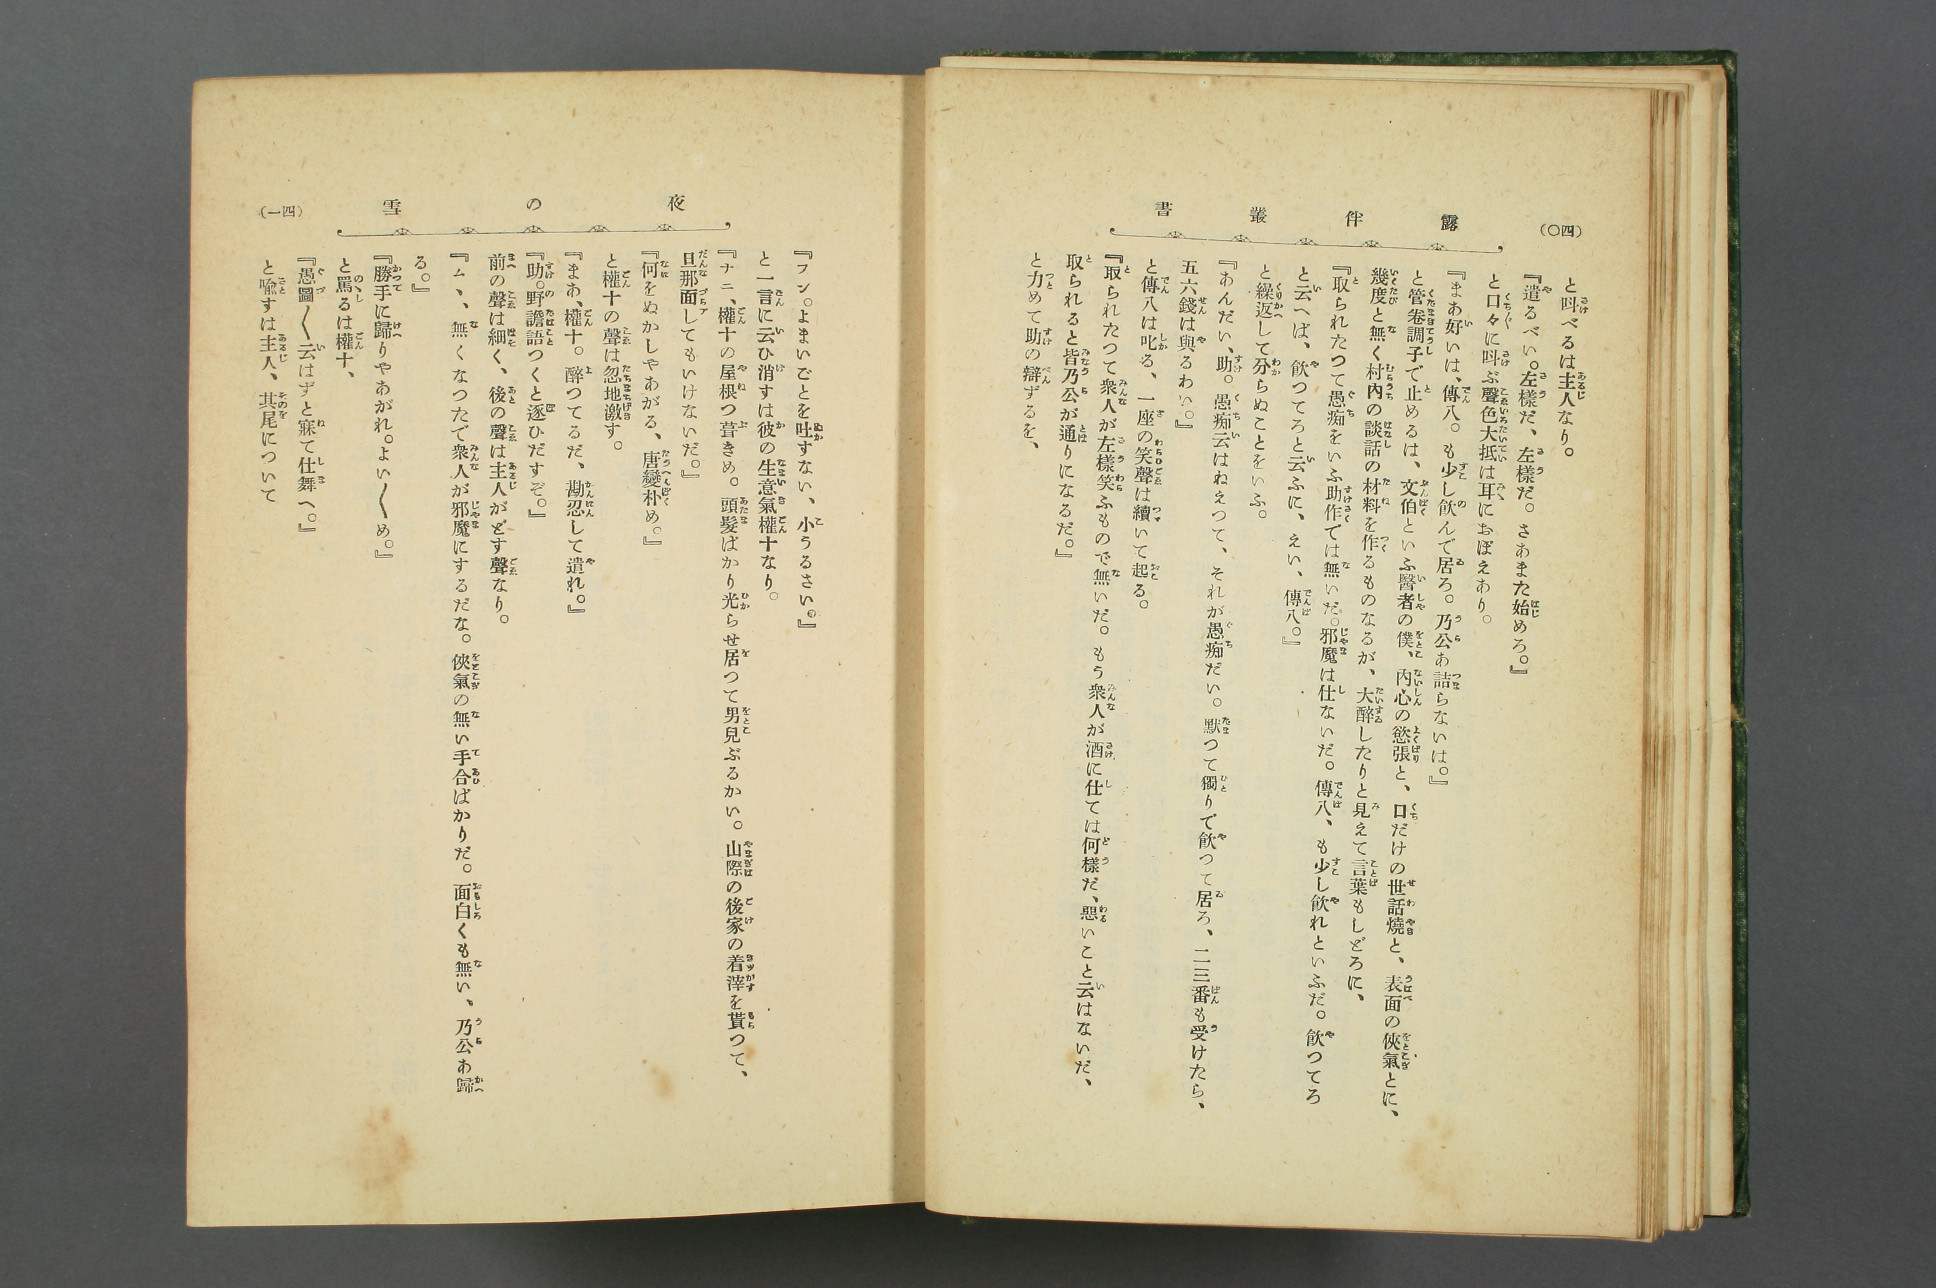 (四〇)
露伴叢書
と呌べるは主人なり。
『遣るべい。左樣だ、左樣だ。さあまた始めろ。』
と口々に呌ぶ聲色大抵は耳におぼえあり。
『まあ好いは、傳八。も少し飮んで居ろ。乃公あ詰らないは。』
と管卷調子で止めるは、文伯といふ醫者の僕、内心の慾張と、口だけの世話燒と、表面の俠氣とに、
幾度と無く村内の談話の材料を作るものなるが、大醉したりと見えて言葉もしどろに、
『取られたつて愚痴をいふ助作では無いだ。邪魔は仕ないだ。傳八、も少し飮れといふだ。飮つてろ
と云へば、飮つてろと云ふに、えい、傳八。』
と繰返して分らぬことをいふ。
『あんだい、助。愚痴云はねえつて、それが愚痴だい。默つて獨りで飮つて居ろ、二三番も受けたら、
五六錢は與るわい。』
と傳八は叱る、一座の笑聲は續いて起る。
『取られたつて衆人が左樣笑ふもので無いだ。もう衆人が酒に仕ては何樣だ、惡いこと云はないだ、
取られると皆乃公が通りになるだ。』
と力めて助の辯ずるを、
夜の雪
(四一)
『フン。よまいごとを吐すない、小うるさい。』
と一言に云ひ消すは彼の生意氣權十なり。
『ナニ、權十の屋根つ葺きめ。頭髮ばかり光らせ居つて男兒ぶるかい。山際の後家の着滓を貰つて、
旦那面してもいけないだ。』
『何をぬかしやあがる、唐變朴め。』
と權十の聲は忽地激す。
『まあ、權十。醉つてるだ、勘忍して遣れ。』
『助。野譫語つくと逐ひだすぞ。』
前の聲は細く、後の聲は主人がどす聲なり。
『ム丶、無くなつたで衆人が邪魔にするだな。俠氣の無い手合ばかりだ。面白くも無い、乃公あ歸
る。』
『勝手に歸りやあがれ。よい〳〵め。』
と罵るは權十、
『愚圖〳〵云はずと寐て仕舞へ。』
と喩すは主人、其尾について